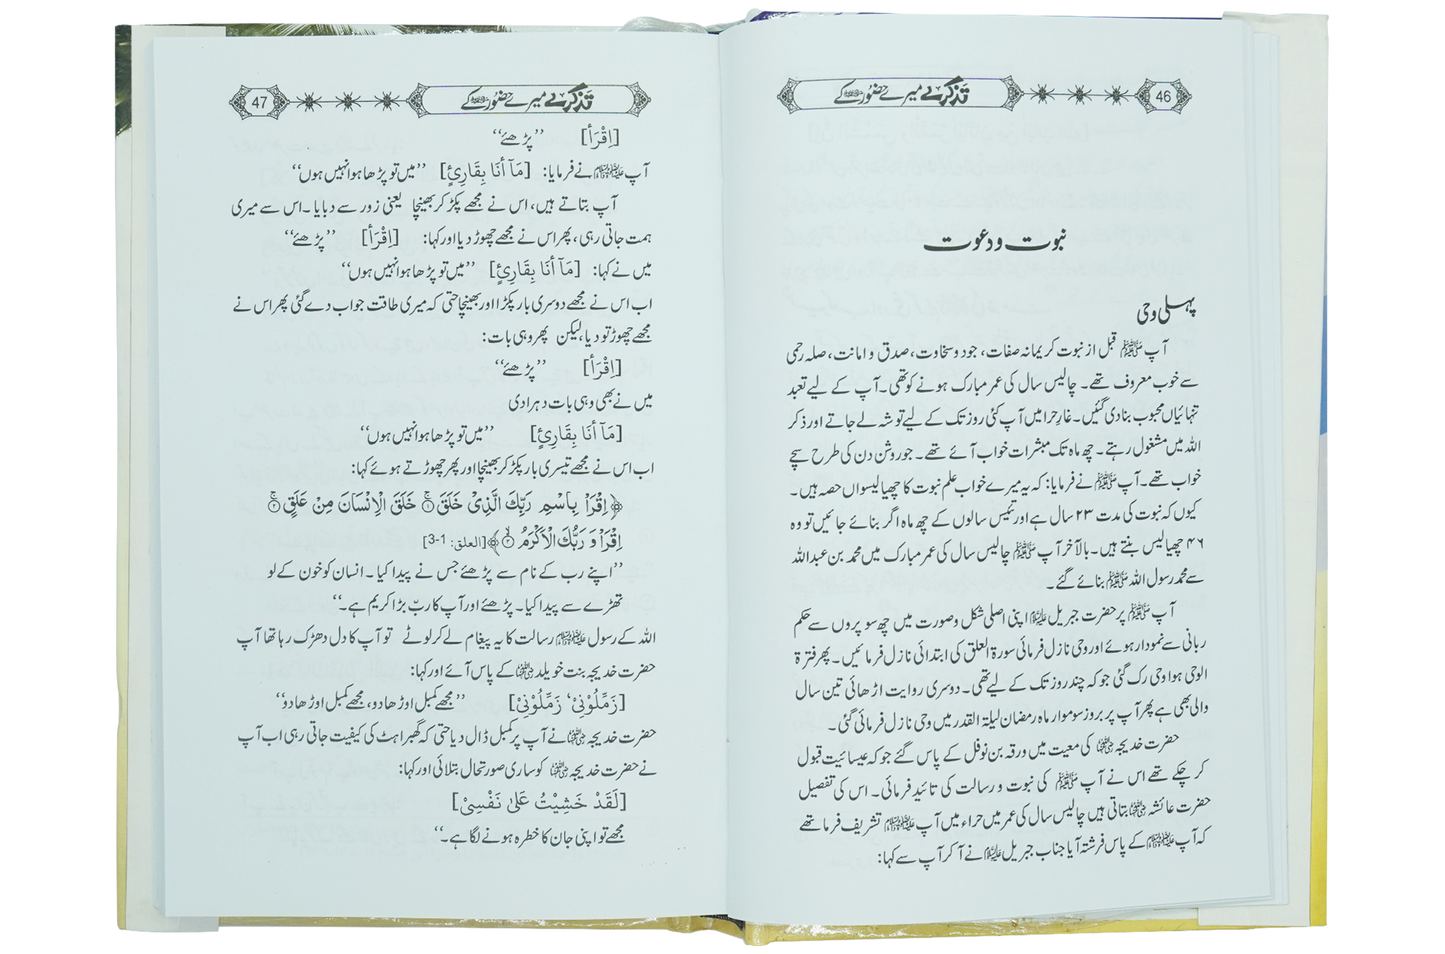 46
تذکرے میرے حضور ﷺ کے
نبوت و دعوت
پہلی وحی
آپ ﷺ قبل از نبوت کریمانہ صفات، جود و سخاوت، صدق و امانت، صلہ رحمی
سے خوب معروف تھے۔ چالیس سال کی عمر مبارک ہونے کو تھی۔ آپ کے لیے تعبد
تنہائیاں محبوب بنا دی گئیں۔ غارِ حرا میں آپ کئی روز تک کے لیے توشہ لے جاتے اور ذکر
اللہ میں مشغول رہتے۔ چھ ماہ تک مبشرات خواب آئے تھے۔ جو روشن دن کی طرح سچے
خواب تھے۔ آپ ﷺ نے فرمایا: کہ یہ میرے خواب علم نبوت کا چھیالیسواں حصہ ہیں۔
کیوں کہ نبوت کی مدت ۲۳ سال ہے اور تئیس سالوں کے چھ ماہ اگر بنائے جائیں تو وہ
۴۶ چھیالیس بنتے ہیں۔ بالآخر آپ ﷺ چالیس سال کی عمر مبارک میں محمد بن عبداللہ
سے محمد رسول اللہ ﷺ بنائے گئے۔
آپ ﷺ پر حضرت جبریل علیہ السلام اپنی اصلی شکل و صورت میں چھ سو پروں سے حکم
ربانی سے نمودار ہوئے اور وحی نازل فرمائی سورۃ العلق کی ابتدائی نازل فرمائیں۔ پھر فترۃ
الوحی ہوا وحی رک گئی جو کہ چند روز تک کے لیے تھی۔ دوسری روایت اڑھائی تین سال
والی بھی ہے پھر آپ پر بروز سوموار ماہ رمضان لیلۃ القدر میں وحی نازل فرمائی گئی۔
حضرت خدیجہ رضی اللہ عنہا کی معیت میں ورقہ بن نوفل کے پاس گئے جو کہ عیسائیت قبول
کر چکے تھے اس نے آپ ﷺ کی نبوت و رسالت کی تائید فرمائی۔ اس کی تفصیل
حضرت عائشہ رضی اللہ عنہا بتاتی ہیں چالیس سال کی عمر میں حراء میں آپ ﷺ تشریف فرما تھے
کہ آپ ﷺ کے پاس فرشتہ آیا جناب جبریل علیہ السلام نے آ کر آپ سے کہا:
47
تذکرے میرے حضور ﷺ کے
[اِقْرَأ] ’’پڑھئے‘‘
آپ ﷺ نے فرمایا: [مَآ أنَا بِقَارِئٍ] ’’میں تو پڑھا ہوا نہیں ہوں‘‘
آپ بتاتے ہیں، اس نے مجھے پکڑ کر بھینچا یعنی زور سے دبایا۔ اس سے میری
ہمت جاتی رہی، پھر اس نے مجھے چھوڑ دیا اور کہا: [اِقْرَأ] ’’پڑھئے‘‘
میں نے کہا: [مَآ أنَا بِقَارِئٍ] ’’میں تو پڑھا ہوا نہیں ہوں‘‘
اب اس نے مجھے دوسری بار پکڑا اور بھینچا حتی کہ میری طاقت جواب دے گئی پھر اس نے
مجھے چھوڑ تو دیا، لیکن پھر وہی بات:
[اِقْرَأ] ’’پڑھئے‘‘
میں نے بھی وہی بات دہرا دی
[مَآ أنَا بِقَارِئٍ] ’’میں تو پڑھا ہوا نہیں ہوں‘‘
اب اس نے مجھے تیسری بار پکڑ کر بھینچا اور پھر چھوڑتے ہوئے کہا:
﴿اِقْرَاْ بِاسْمِ رَبِّكَ الَّذِىْ خَلَقَ ۚ۱ خَلَقَ الْاِنْسَانَ مِنْ عَلَقٍ ۚ۲
اِقْرَاْ وَ رَبُّكَ الْاَكْرَمُ ۙ۳﴾ [العلق: 1-3]
’’اپنے رب کے نام سے پڑھئے جس نے پیدا کیا۔ انسان کو خون کے لو
تھڑے سے پیدا کیا۔ پڑھئے اور آپ کا ربّ بڑا کریم ہے۔‘‘
اللہ کے رسول ﷺ رسالت کا یہ پیغام لے کر لوٹے تو آپ کا دل دھڑک رہا تھا آپ
حضرت خدیجہ بنت خویلد رضی اللہ عنہا کے پاس آئے اور کہا:
[زَمِّلُوْنِیْ، زَمِّلُوْنِیْ] ’’مجھے کمبل اوڑھا دو، مجھے کمبل اوڑھا دو‘‘
حضرت خدیجہ رضی اللہ عنہا نے آپ پر کمبل ڈال دیا حتی کہ گھبراہٹ کی کیفیت جاتی رہی اب آپ
نے حضرت خدیجہ رضی اللہ عنہا کو ساری صورتحال بتلائی اور کہا:
[لَقَدْ خَشِیْتُ عَلیٰ نَفْسِیْ]
مجھے تو اپنی جان کا خطرہ ہونے لگا ہے۔‘‘